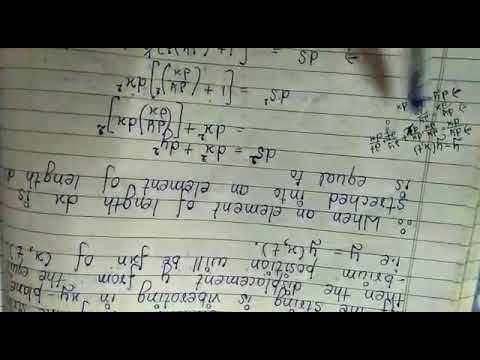 the string is viberating in xy-plane
then the displacement y from the equi
-brium position will be fxn of (x,t)
i.e y = y(x,t).
∴ When an element of length dx is
streched into an element of length d
is equal to
ds² = dx² + dy²
= dx² + [(dy/dx) dx]²
ds² = [1 + (dy/dx)²] dx²
⇒ ds = [1 + (dy/dx)²]
y = y(x,t)